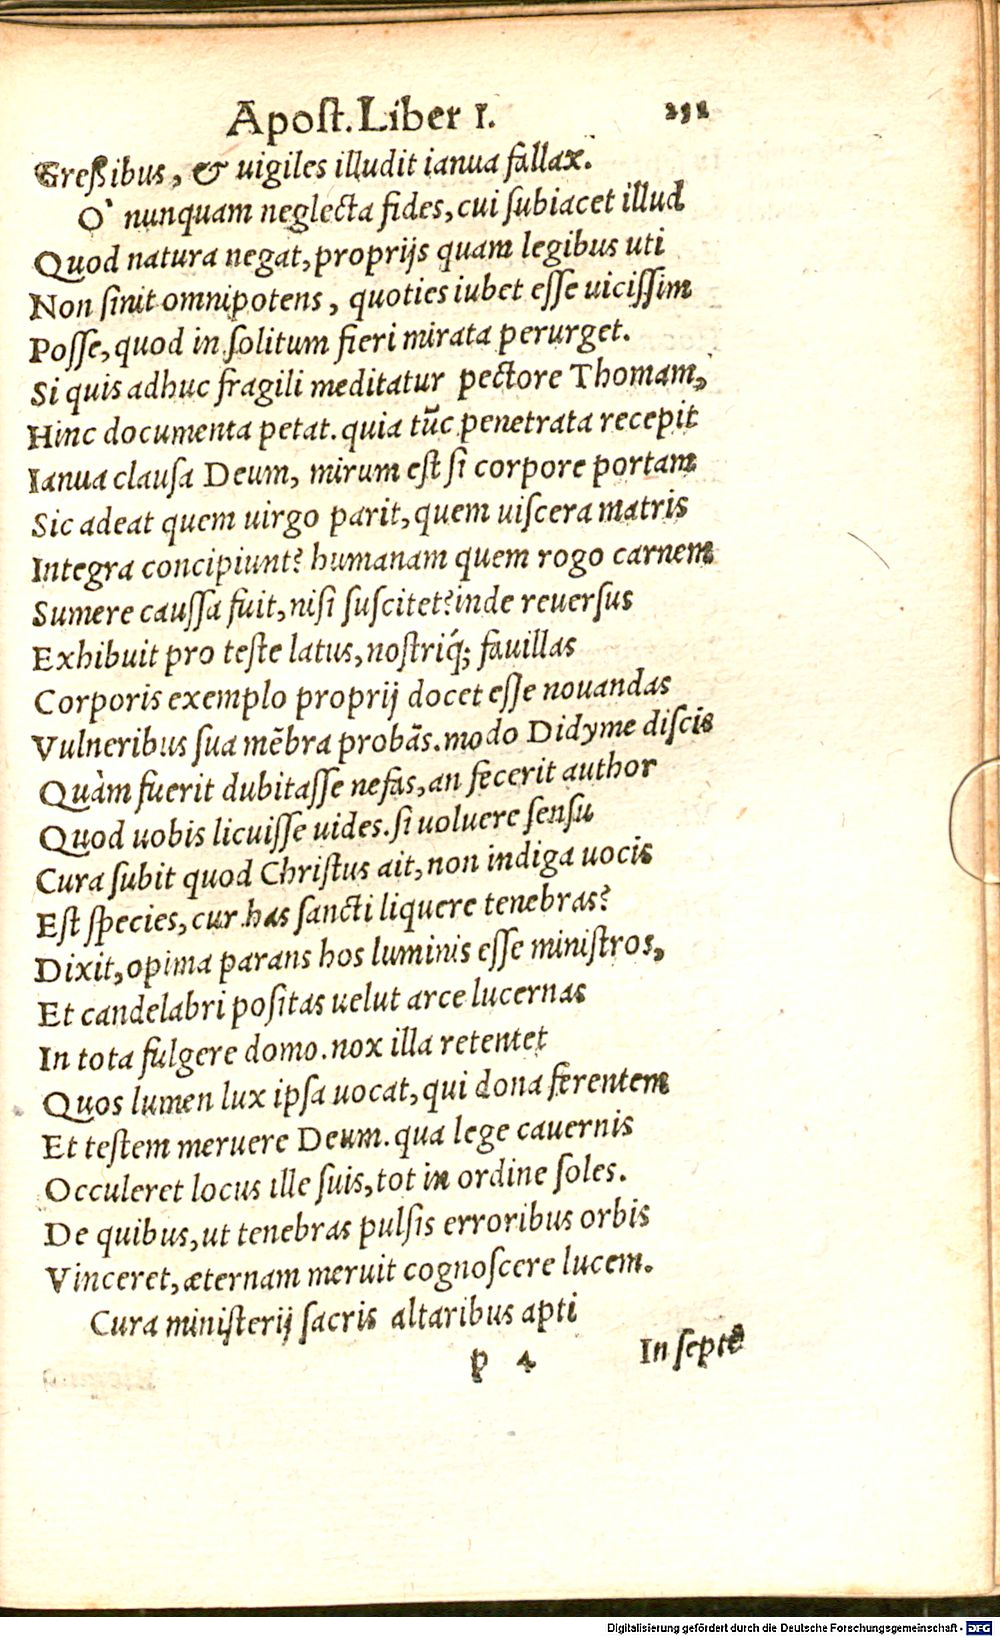 Apost. Liber I. 231
Greßibus, & uigiles illudit ianua fallax.
O` nunquam neglecta fides, cui subiacet illud
Quod natura negat, proprijs quam legibus uti
Non sinit omnipotens, quoties iubet esse uicissim
Posse, quod in solitum fieri mirata perurget.
Si quis adhuc fragili meditatur pectore Thomam,
Hinc documenta petat. quia tũc penetrata recepit
Ianua clausa Deum, mirum est si corpore portam
Sic adeat quem uirgo parit, quem uiscera matris
Integra concipiunt? humanam quem rogo carnem
Sumere caussa fuit, nisi suscitet? inde reuersus
Exhibuit pro teste latus, nostriq́; fauillas
Corporis exemplo proprij docet esse nouandas
Vulneribus sua mẽbra probãs. modo Didyme discis
Quàm fuerit dubitasse nefas, an fecerit author
Quod uobis licuisse uides. si uoluere sensu
Cura subit quod Christus ait, non indiga uocis
Est species, cur has sancti liquere tenebras?
Dixit, opima parans hos luminis esse ministros,
Et candelabri positas uelut arce lucernas
In tota fulgere domo. nox illa retentet
Quos lumen lux ipsa uocat, qui dona ferentem
Et testem meruere Deum. qua lege cauernis
Occuleret locus ille suis, tot in ordine soles.
De quibus, ut tenebras pulsis erroribus orbis
Vinceret, æternam meruit cognoscere lucem.
Cura ministerij sacris altaribus apti
p 4 In septẽ
Digitalisierung gefördert durch die Deutsche Forschungsgemeinschaft - DFG